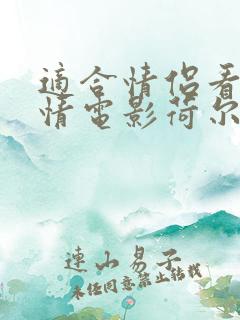 適合情侶看
情電影荷尔
連山易子
未经同意禁止转载